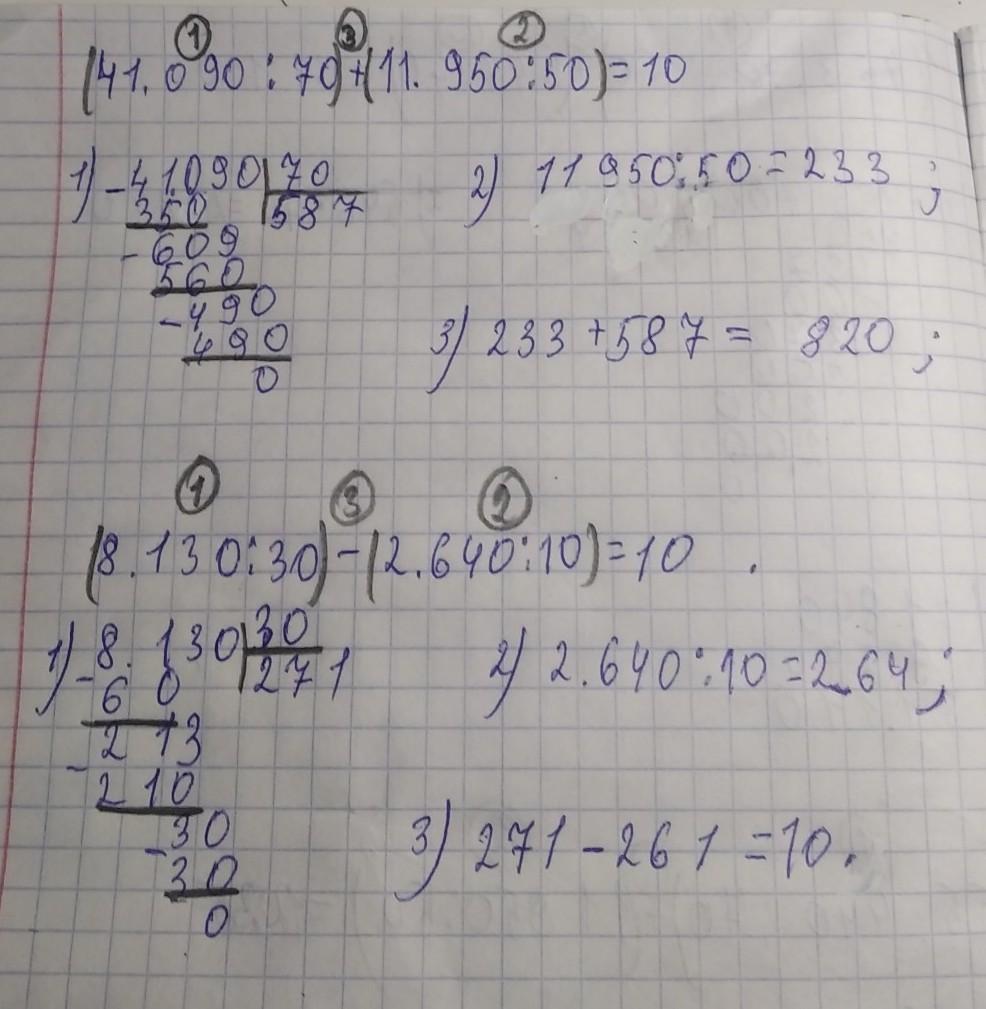 ① ③ ②
(41.090:70)+(11.950:50)=10
1) -41.090 70
350 587
-609
560
-490
490
0
2) 11950:50=233;
3) 233+587= 820;
① ③ ②
(8.130:30)-(2.640:10)=10.
1) -8.130 30
6 0 271
-2 13
210
-30
30
0
2) 2.640:10=2.64;
3) 271-261=10.